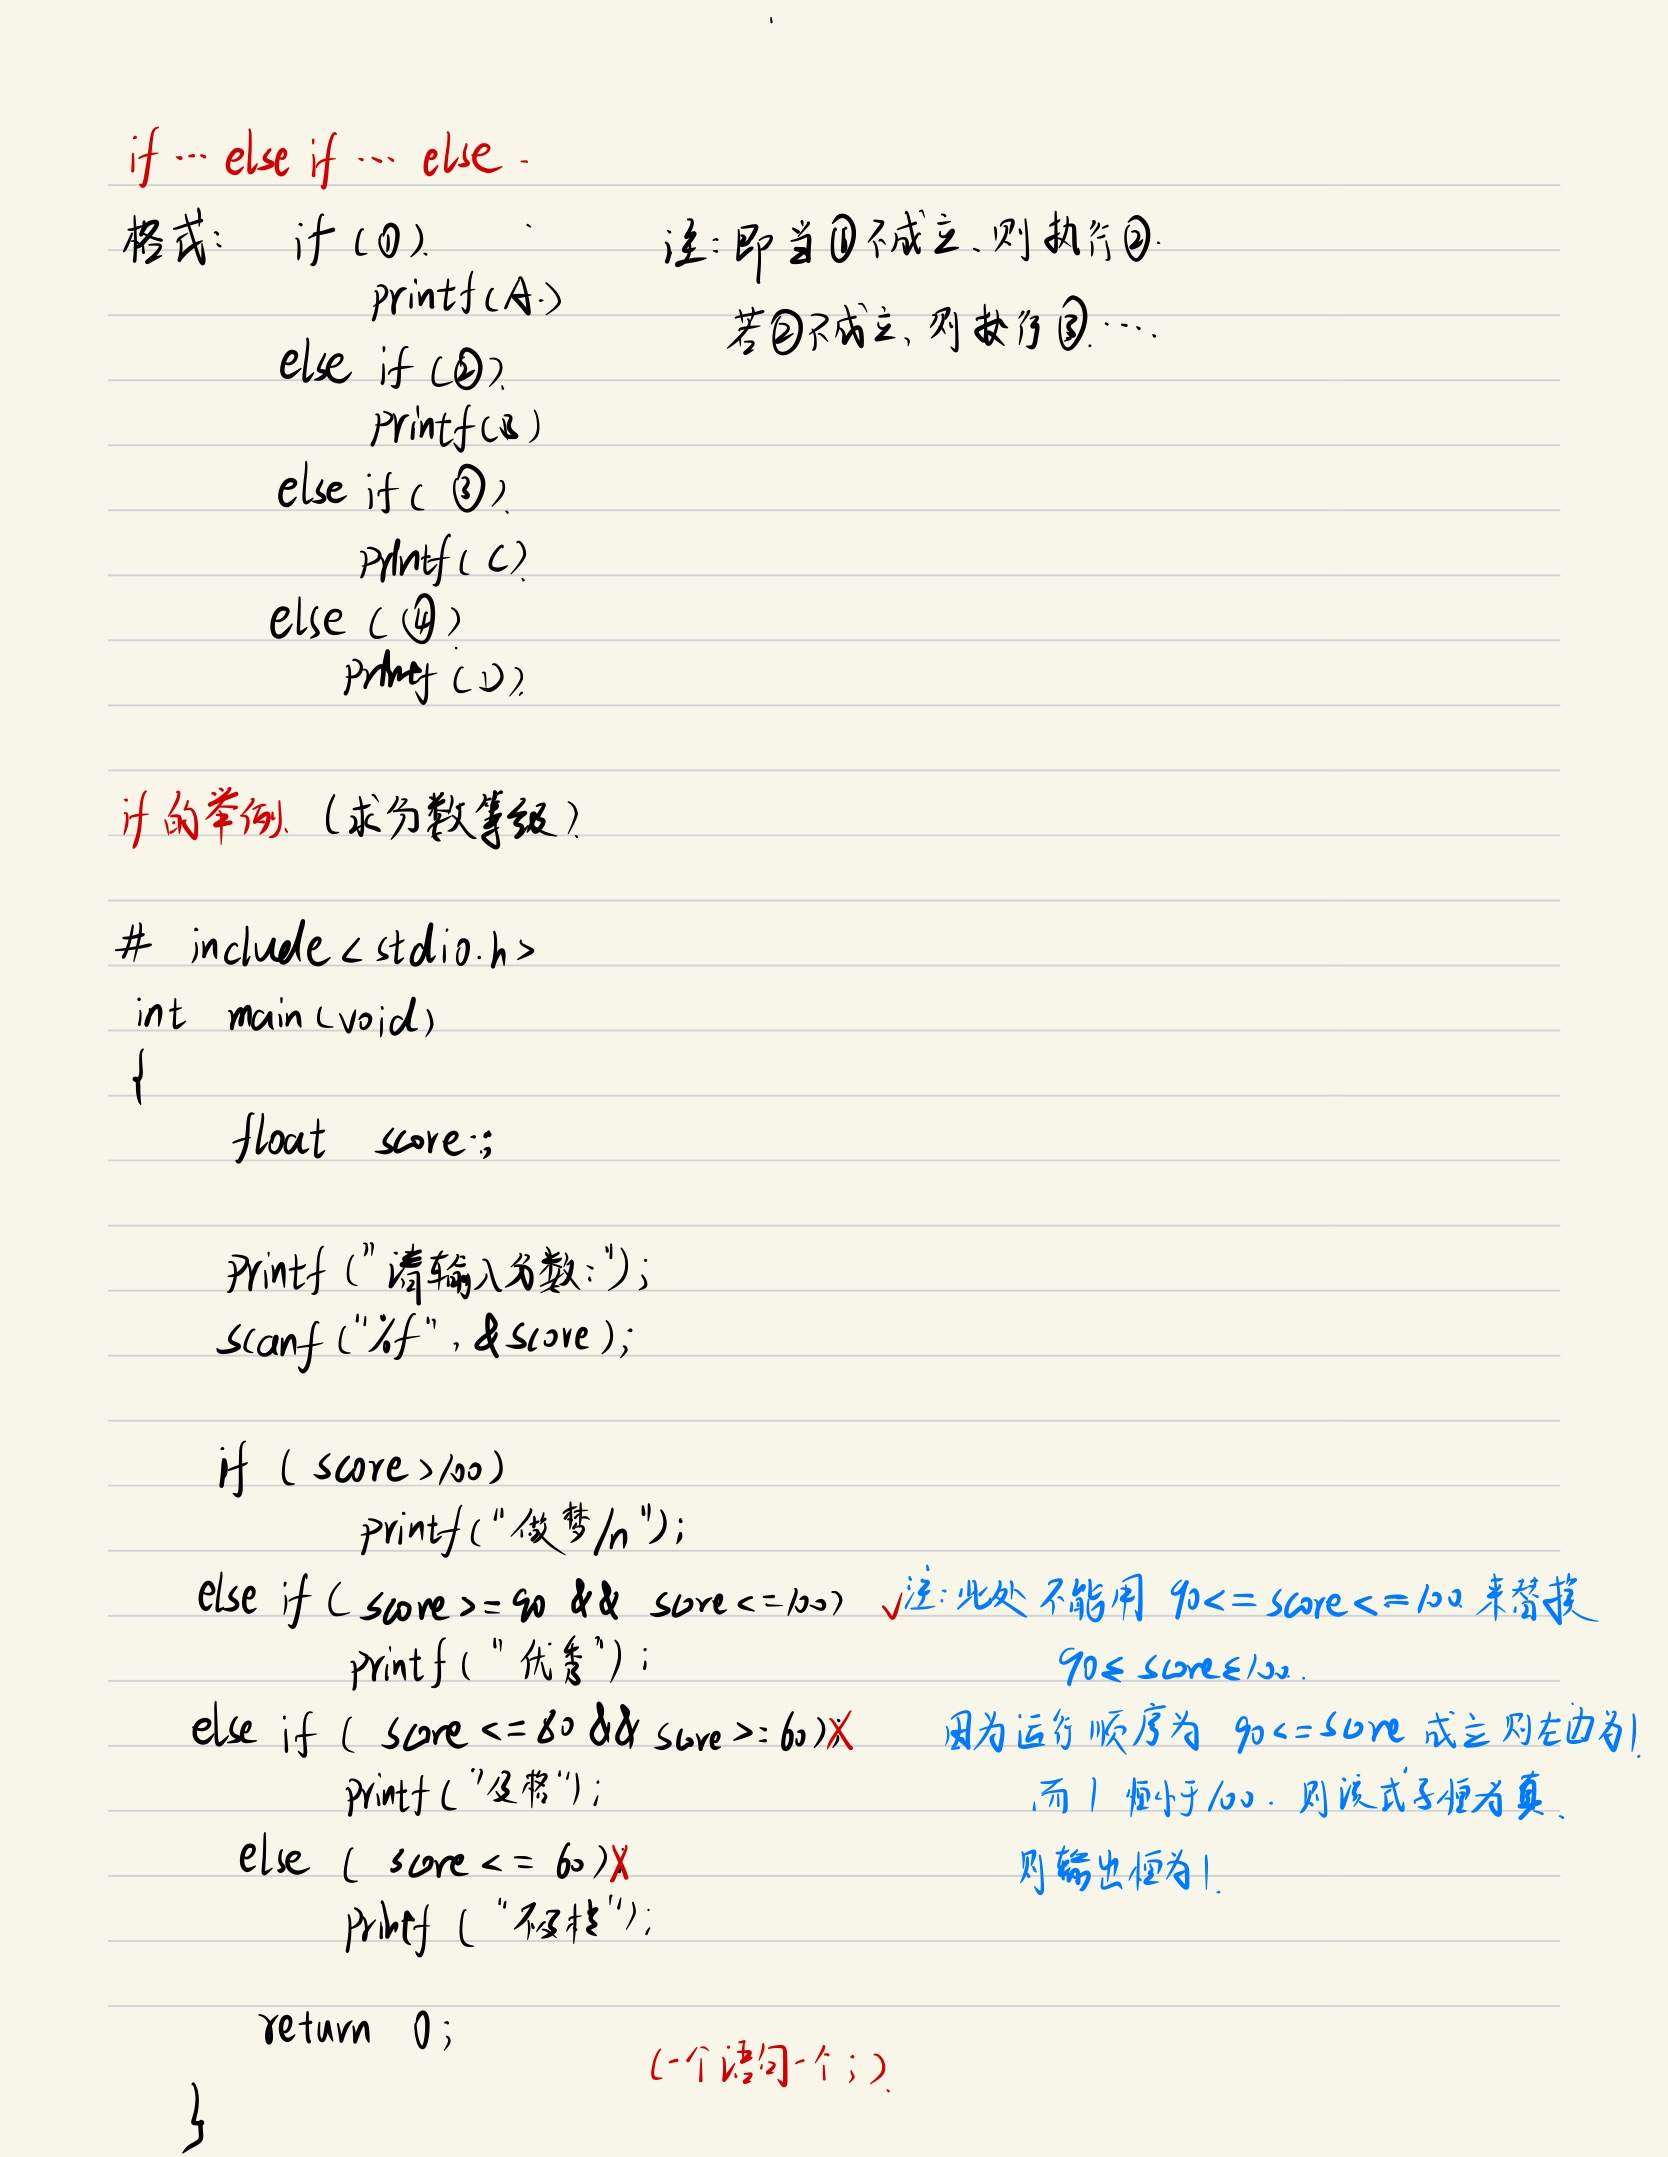 if … else if … else .
格式: if (①). 注:即当①不成立、则执行②.
printf(A.)
若②不成立、则执行③.….
else if (②).
printf(B)
else if( ③).
printf( C).
else (④)
printf (D).
if 的举例. (求分数等级).
# include < stdio.h >
int main(void)
{
float score;
printf ("请输入分数:");
scanf ("%f", &score);
if ( score>100)
printf("做梦/n");
else if ( score>=90 && score<=100) ✓注:此处不能用 90<= score<=100 来替换
printf ("优秀"); 90≤ score≤100.
else if ( score <= 80 && score >= 60)X 因为运行顺序为 90<=score 成立则左边为1.
printf ("及格"); 而1恒小于100. 则该式子恒为真.
else ( score <= 60)X 则输出恒为1.
printf ("不及格");
return 0;
(一个语句一个;)
}